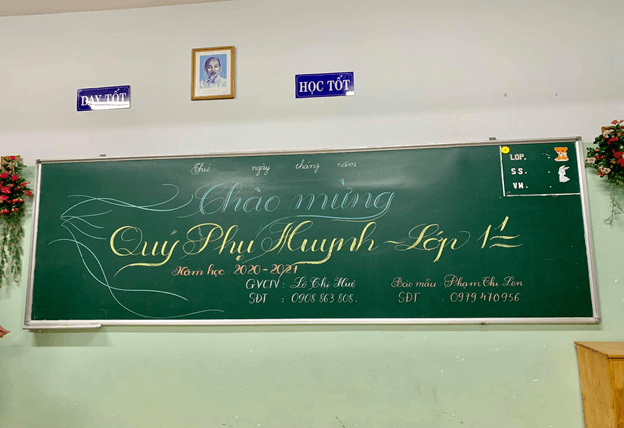 DẠY TỐT
HỌC TỐT
Thứ ngày tháng năm
LỚP.
SS.
VM.
Chào mừng
Quý Phụ Huynh - Lớp 1/1
Năm học: 2020-2021
GVCN: Lê Thị Huê
Bảo mẫu: Phạm Thị Lon
SĐT: 0908 863 808.
SĐT: 0979 470 956.